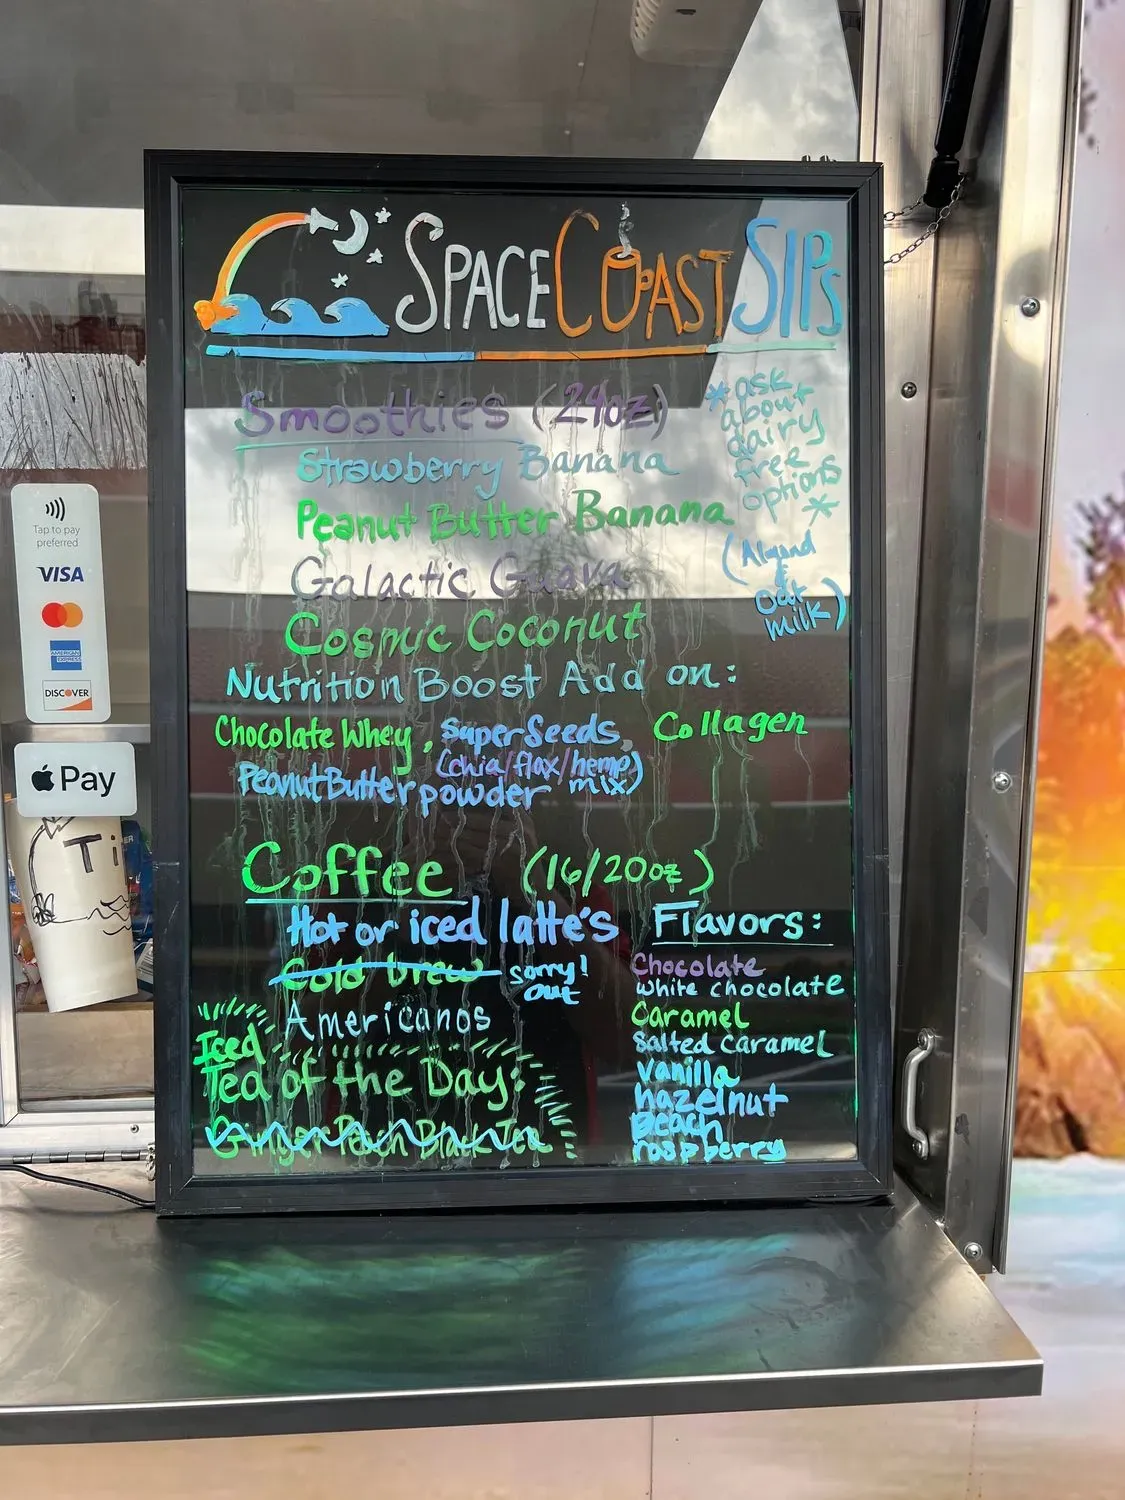 SPACE COAST SIPS
Smoothies (24oz)
Strawberry Banana
Peanut Butter Banana
Galactic Guava
Cosmic Coconut
* ask
about
dairy
free
options
*
(Almond
&
oat
milk)
Nutrition Boost Add on:
Chocolate Whey, SuperSeeds Collagen
(chia/flax/hemp)
PeanutButter powder mix)
Coffee (16/20oz)
Hot or iced latte's
Cold brew sorry!
out
Americanos
Iced
Tea of the Day:
Ginger Peach Black Tea
Flavors:
Chocolate
white chocolate
Caramel
Salted Caramel
vanilla
hazelnut
peach
raspberry
Tap to pay
preferred
VISA
AMERICAN
EXPRESS
DISCOVER
Pay
Ti